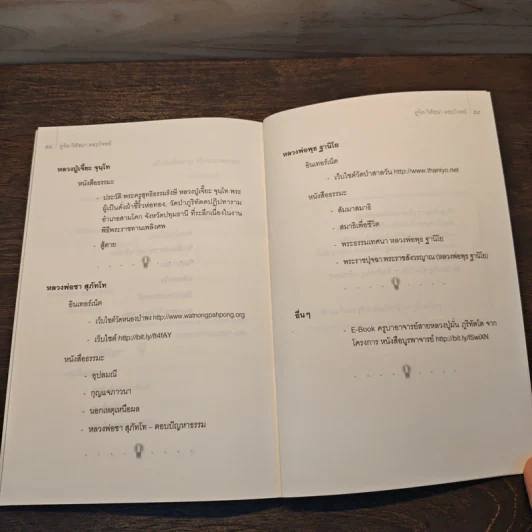 ๕๔ ดูจิต วิศัชนา ตอบโจทย์
หลวงปู่เจี๊ยะ จุนฺโท
หนังสือธรรมะ
- ประวัติ พระครูสุทธิธรรมรังษี หลวงปู่เจี๊ยะ จุนฺโท พระ
ผู้เป็นดั่งผ้าขี้ริ้วห่อทอง, วัดป่าภูริทัตตปฏิปทาราม
อำเภอสามโคก จังหวัดปทุมธานี ที่ระลึกเนื่องในงาน
พิธีพระราชทานเพลิงศพ
- สู้ตาย
หลวงพ่อชา สุภัทโท
อินเทอร์เน็ต
- เว็บไซต์วัดหนองป่าพง http://www.watnongpahpong.org
- เว็บไซต์ http://bit.ly/84fAY
หนังสือธรรมะ
- อุปลมณี
- กุญแจภาวนา
- นอกเหตุเหนือผล
- หลวงพ่อชา สุภัทโท – ตอบปัญหาธรรม
ดูจิต วิศัชนา ตอบโจทย์ ๕๕
หลวงพ่อพุธ ฐานิโย
อินเทอร์เน็ต
- เว็บไซต์วัดป่าสาลวัน http://www.thaniyo.net
หนังสือธรรมะ
- สัมมาสมาธิ
- สมาธิเพื่อชีวิต
- พระธรรมเทศนา หลวงพ่อพุธ ฐานิโย
- พระราชปุจฉา พระราชสังวรญาณ (หลวงพ่อพุธ ฐานิโย)
อื่นๆ
- E-Book ครูบาอาจารย์สายหลวงปู่มั่น ภูริทัตโต จาก
โครงการ หนังสือบูรพาจารย์ http://bit.ly/fSwiXN